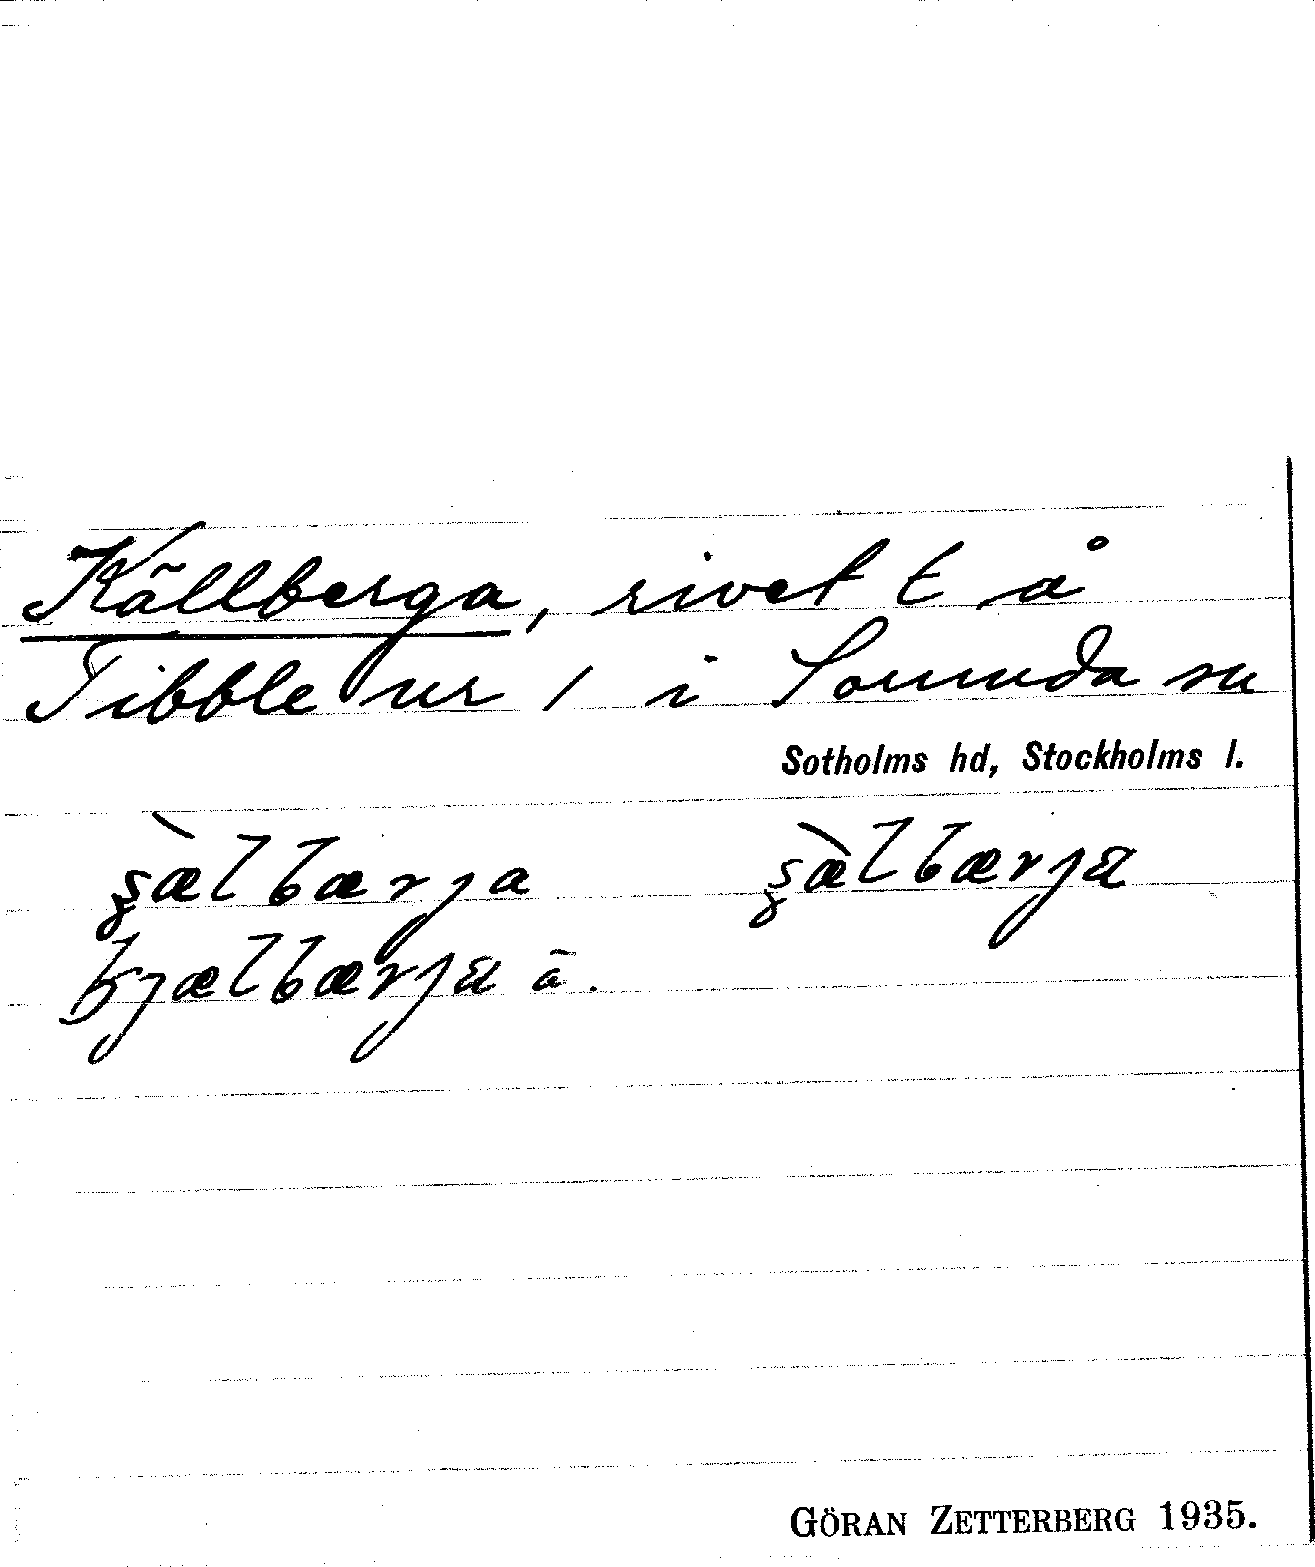 Källberga, rivet t å
Tibble nr 1 i Sorunda sn
Sotholms hd, Stockholms l.
ʂæ̀lbærja ʂæ̀lbærja
kjælbærja ä.
GÖRAN ZETTERBERG 1935.